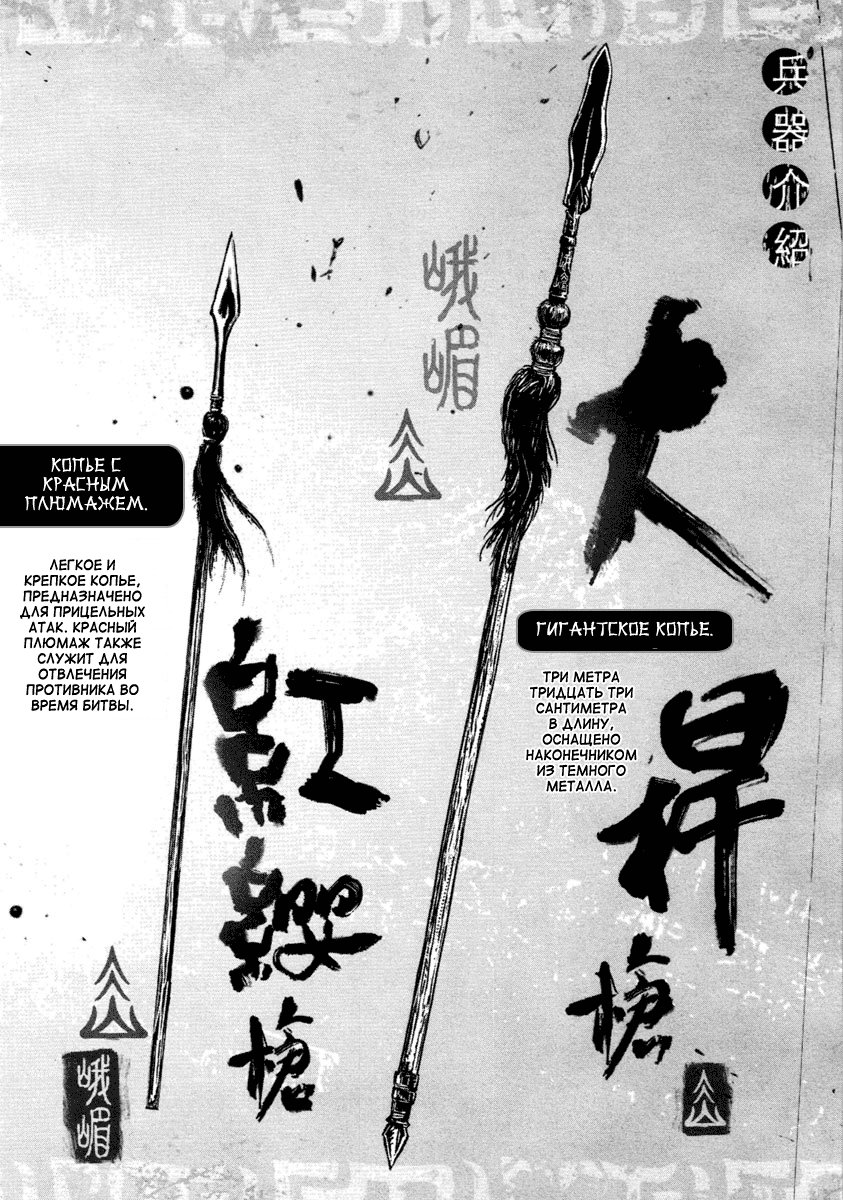 兵器介紹
峨嵋
大桿槍
ГИГАНТСКОЕ КОПЬЕ.
ТРИ МЕТРА
ТРИДЦАТЬ ТРИ
САНТИМЕТРА
В ДЛИНУ,
ОСНАЩЕНО
НАКОНЕЧНИКОМ
ИЗ ТЕМНОГО
МЕТАЛЛА.
КОПЬЕ С
КРАСНЫМ
ПЛЮМАЖЕМ.
ЛЕГКОЕ И
КРЕПКОЕ КОПЬЕ,
ПРЕДНАЗНАЧЕНО
ДЛЯ ПРИЦЕЛЬНЫХ
АТАК. КРАСНЫЙ
ПЛЮМАЖ ТАКЖЕ
СЛУЖИТ ДЛЯ
ОТВЛЕЧЕНИЯ
ПРОТИВНИКА ВО
ВРЕМЯ БИТВЫ.
紅纓槍
峨嵋